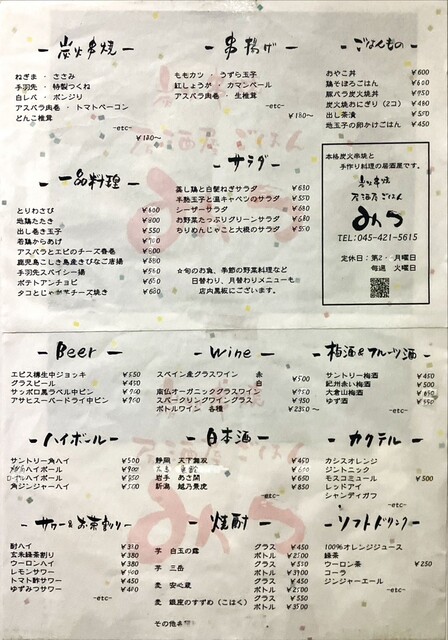 ー炭火串焼ー
ねぎま ・ ささみ
手羽先 ・ 特製つくね
白レバ ・ ボンジリ
アスパラ肉巻 ・ トマトベーコン
どんこ椎茸
-etc-
ー串揚げー
ももカツ ・ うずら玉子
紅しょうが ・ カマンベール
アスパラ肉巻 ・ 生椎茸
-etc-
ーごはんものー
おやこ丼 ¥600
鶏そぼろごはん ¥600
豚バラ炭火焼丼 ¥950
炭火焼おにぎり(2コ) ¥480
出し茶漬 ¥500
地玉子の卵かけごはん ¥450
ー一品料理ー
とりわさび
地鶏たたき
出し巻き玉子
若鶏からあげ
アスパラとエビのチーズ春巻
鹿児島こしき島産きびなご唐揚
手羽先スパイシー揚
ポテトアンチョビ
タコとじゃがチーズ焼き
ーサラダー
蒸し鶏と白髪ねぎサラダ ¥680
半熟玉子と温キャベツのサラダ ¥550
シーザーサラダ ¥680
お野菜たっぷりグリーンサラダ ¥680
ちりめんじゃこと大根のサラダ ¥550
☆旬のお魚、季節の野菜料理など
日替わり、月替わりメニューも
店内黒板にございます。
本格炭火串焼と
手作り料理の居酒屋です。
TEL:045-421-5615
定休日:第2・ 月曜日
毎週 火曜日
ーBeerー
エビス樽生中ジョッキ ¥550
グラスビール ¥450
サッポロ黒ラベル中ビン
アサヒスーパードライ中ビン
ーWineー
スペイン産グラスワイン 赤
白 ¥500
南仏オーガニックグラスワイン
スパークリングワイングラス
ボトルワイン 各種
ー梅酒&フルーツ酒ー
サントリー梅酒 ¥450
紀州赤い梅酒 ¥500
大倉山梅酒 ¥650
ゆず酒 ¥550
-etc-
ーハイボールー
サントリー角ハイ ¥500
ハイボール
ハイボール
角ジンジャーハイ
ー日本酒ー
静岡 天下無双 ¥450
岩手 あさ開
新潟 越乃景虎
-etc-
ーカクテルー
カシスオレンジ
ジントニック
モスコミュール ¥500
レッドアイ
シャンディガフ
-etc-
ーサワー&お茶割りー
酎ハイ ¥310
玄米緑茶割り ¥380
ウーロンハイ ¥380
レモンサワー
トマト酎サワー
ゆずみつサワー
-etc-
ー焼酎ー
芋 白玉の露 グラス ¥450
ボトル
芋 三岳 グラス
ボトル
麦 安心蔵 グラス
ボトル
麦 銀座のすずめ(こはく) グラス
ボトル
その他
ーソフトドリンクー
100%オレンジジュース
緑茶
ウーロン茶 ¥250
コーラ
ジンジャーエール
-etc-